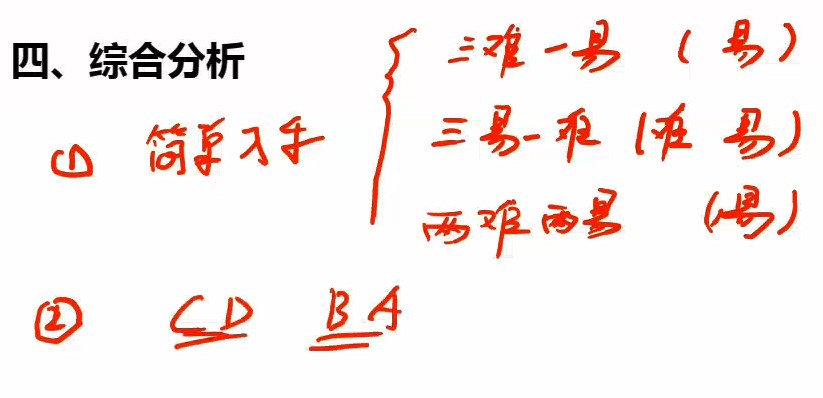 四、综合分析
① 简单入手
三难一易（易）
三易一难（难 易）
两难两易（易）
② CD BA